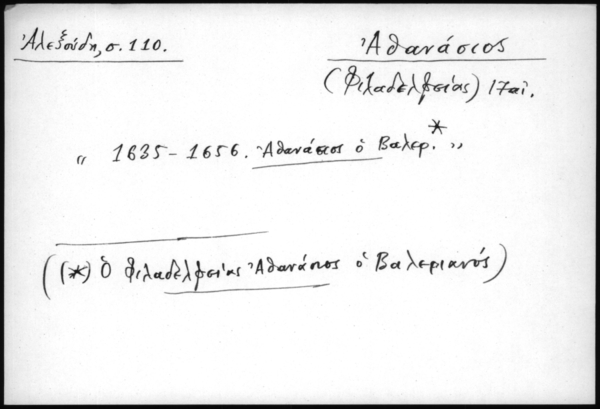 Ἀλεξούδη, σ. 110.
Ἀθανάσιος
(Φιλαδελφείας) 17αἰ.
„ 1635 - 1656. Ἀθανάσιος ὁ Βαλερ.* „
((*) Ὁ Φιλαδελφείας Ἀθανάσιος ὁ Βαλεριανός)